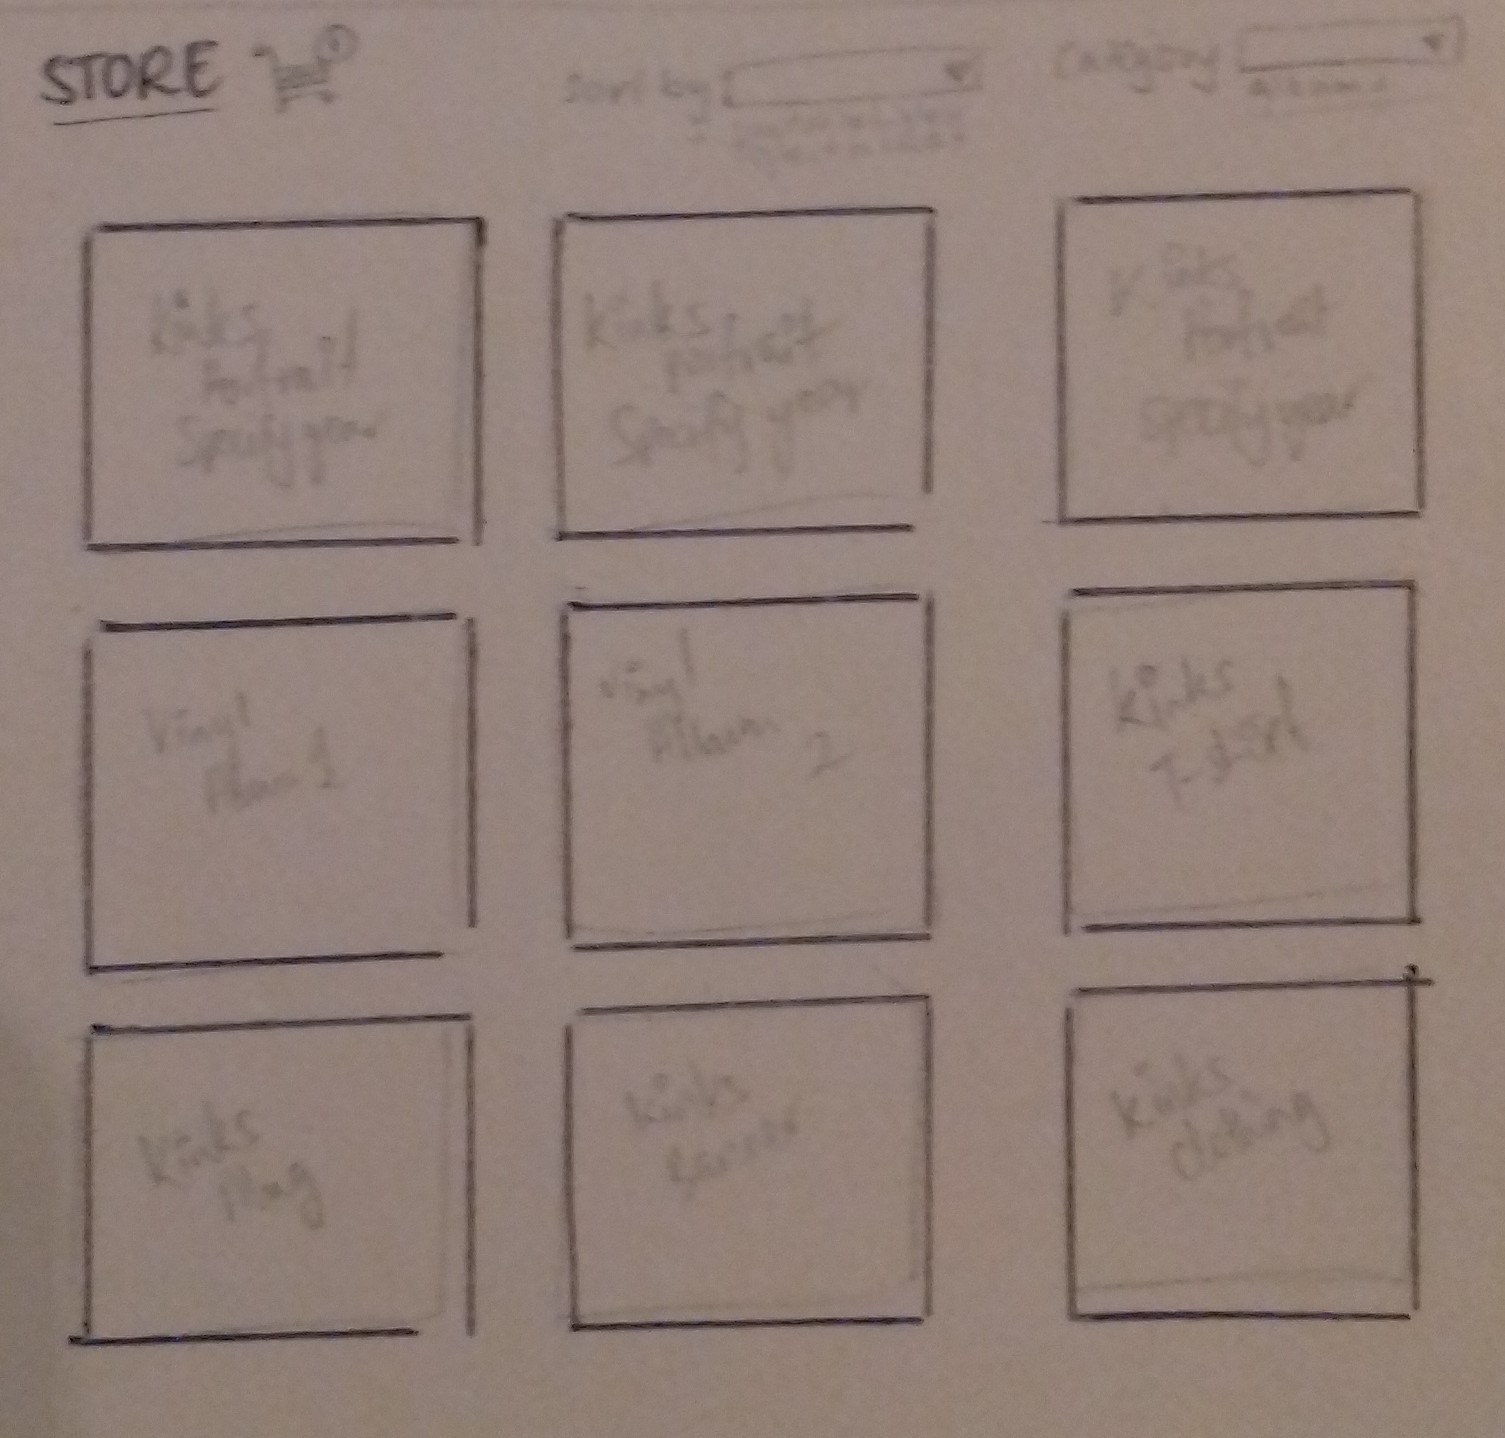 STORE
sort by
Category
albums
Kinks
Portrait
Specify year
Kinks
portrait
Specify year
Kinks
Portrait
Specify year
Vinyl
Album 1
Vinyl
Album 2
Kinks
T-shirt
Kinks
Mug
Kinks
Kinks
clothing